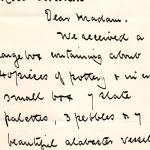 Dear Madam.
We received a
large box containing about
40 pieces of pottery &
small box 7 slate
palettes, 3 pebbles & 7
beautiful alabaster vessel